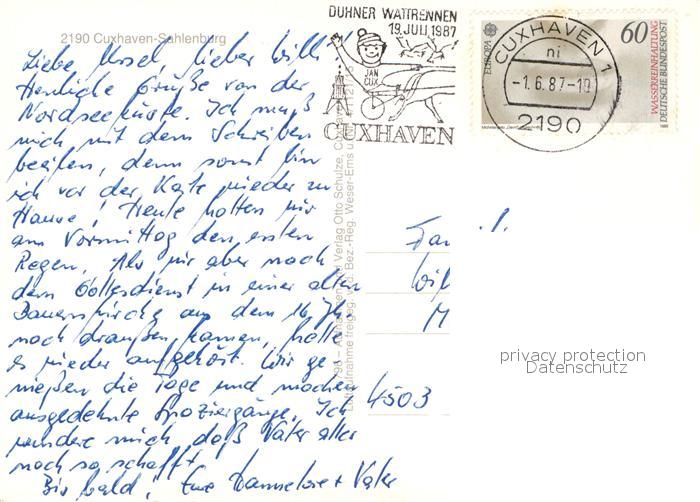 2190 Cuxhaven-Sahlenburg
DUHNER WATTRENNEN
19. JULI 1987
JAN
CUX
CUXHAVEN
CUXHAVEN 1
ni
-1.6.87-19
2190
EUROPA
60
WASSERREINHALTUNG
DEUTSCHE BUNDESPOST
Liebe Ursel, lieber Willi!
Herzliche Grüße von der
Nordseeküste. Ich muß
mich mit dem Schreiben
beeilen, denn sonst bin
ich vor der Karte wieder zu
Hause! Heute hatten wir
am Vormittag den ersten
Regen. Als wir aber nach
dem Gottesdienst in einer alten
Bauernkirche aus dem 16. Jh
nach draußen kamen, hatte
es wieder aufgehört. Wir ge-
nießen die Tage und machen
ausgedehnte Spaziergänge. Ich
wundere mich, daß Vater alles
noch so schafft.
Bis bald! Eure Hannelore + Vater
Verlag Otto Schulze
Bez.-Reg. Weser-Ems
Fam
Wil
M
4503
privacy protection
Datenschutz